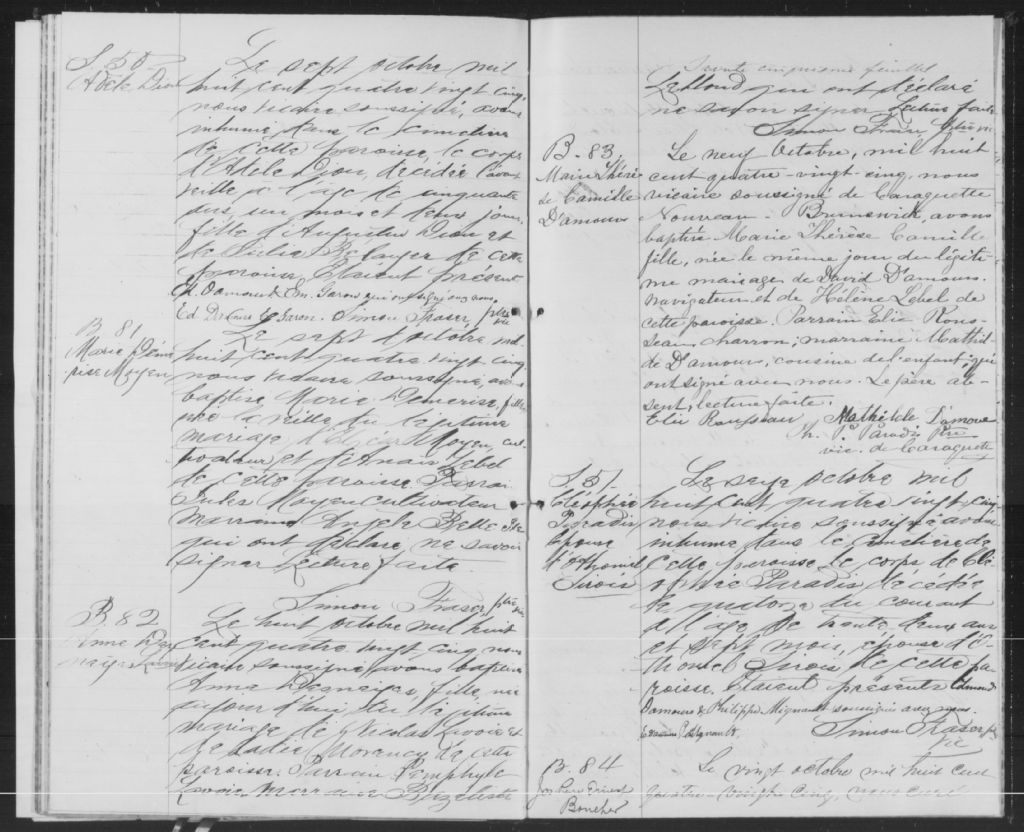 S. 50
Adèle Dion
Le sept octobre mil
huit cent quatre vingt cinq,
nous vicaire soussigné, avons
inhumé dans le cimetière
de cette paroisse, le corps
d'Adèle Dion, décédée l'avant
veille à l'age de cinquante
un mois et deux jours,
fille d'Augustin Dion et
de Julie Bélanger de cette
paroisse. Etaient présents
Damours Em. Garon qui ont signé avec nous.
Ed. Damours Garon. Simon Fraser, ptre
vic
B. 81
Marie Déme
rise Moyen
Le sept d'octobre, mil
huit cent quatre vingt cinq
nous vicaire soussigné, avons
baptisé Marie Démerise, fille
née la veille du légitime
mariage d'Edgar Moyen, cul
tivateur et d'Anais Lebel
de cette paroisse. Parrain
Jules Moyen cultivateur
marraine Angèle
qui ont déclaré ne savoir
signer. Lecture faite.
Simon Fraser, ptre
vic
B. 82
Anne
Le huit octobre mil huit
cent quatre vingt cinq nous
vicaire soussigné, avons baptisé
Anna fille, née
aujourd'hui du légitime
mariage de Nicolas Lavoie et
de Morency de cette
paroisse. Parrain Pamphyle
Lavoie, marraine
Trente cinquième feuillet
Leblond qui ont déclaré
ne savoir signer. Lecture faite
Simon Fraser, Ptre vic
B. 83.
Marie Thérè
se Camille
D'amours
Le neuf Octobre, mil huit-
cent quatre-vingt-cinq, nous
vicaire soussigné de Caraquette
Nouveau-Brunswick, avons
baptisé Marie Thérèse Camille
fille, née le même jour du légiti-
me mariage de David D'amours.
navigateur et de Hélène Lebel de
cette paroisse. Parrain Elie Rous-
seau charron; marraine Mathil-
de D'amours, cousine de l'enfant, qui
ont signé avec nous. Le père ab-
sent, lecture faite.
Elie Rousseau Mathilde Damours
Th. P. Paradis Ptre
vic. de Caraquette
S. 51
Cléophée
Paradis
Epouse
d'Othomel
Sirois
Le seize octobre mil
huit cent quatre vingt cinq
nous vicaire soussigné avons
inhumé dans le cimetière de
cette paroisse le corps de Clé
ophée Paradis décédée
le quatorze du courant
à l'age de trente deux ans
et sept mois, épouse d'O-
thomel Sirois de cette pa
roisse. Etaient présents Edmond
Damours & Philippe Mignault soussignés avec nous.
Mignault.
Simon Fraser ptre
vic
B. 84
Joseph Ernest
Boucher
Le vingt octobre mil huit cent
quatre-vingt cinq, nous curé